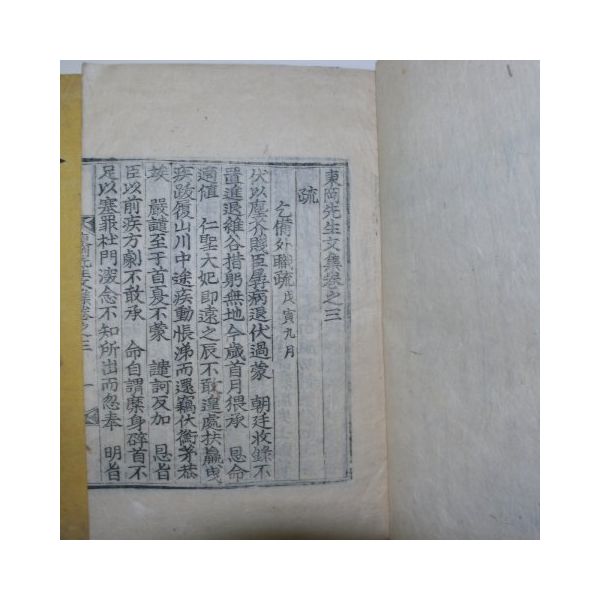 東岡先生文集卷之三
疏
乞備外職疏 戊寅九月
伏以塵芥賤臣孱病退伏過蒙 朝廷收錄不
置進退維谷措躬無地今歲首月猥承 恩命
適值 仁聖大妃即遠之辰不敢遑處扶羸曳
疾跋履山川中途疾動悵涕而還竊伏衡茅恭
竢 嚴譴至于首夏不蒙 譴訶反加 恩旨
臣以前疾方劇不敢承 命自謂糜身碎首不
足以塞罪杜門 念不知所出而忽奉 明旨
東岡先生文集卷之三 一